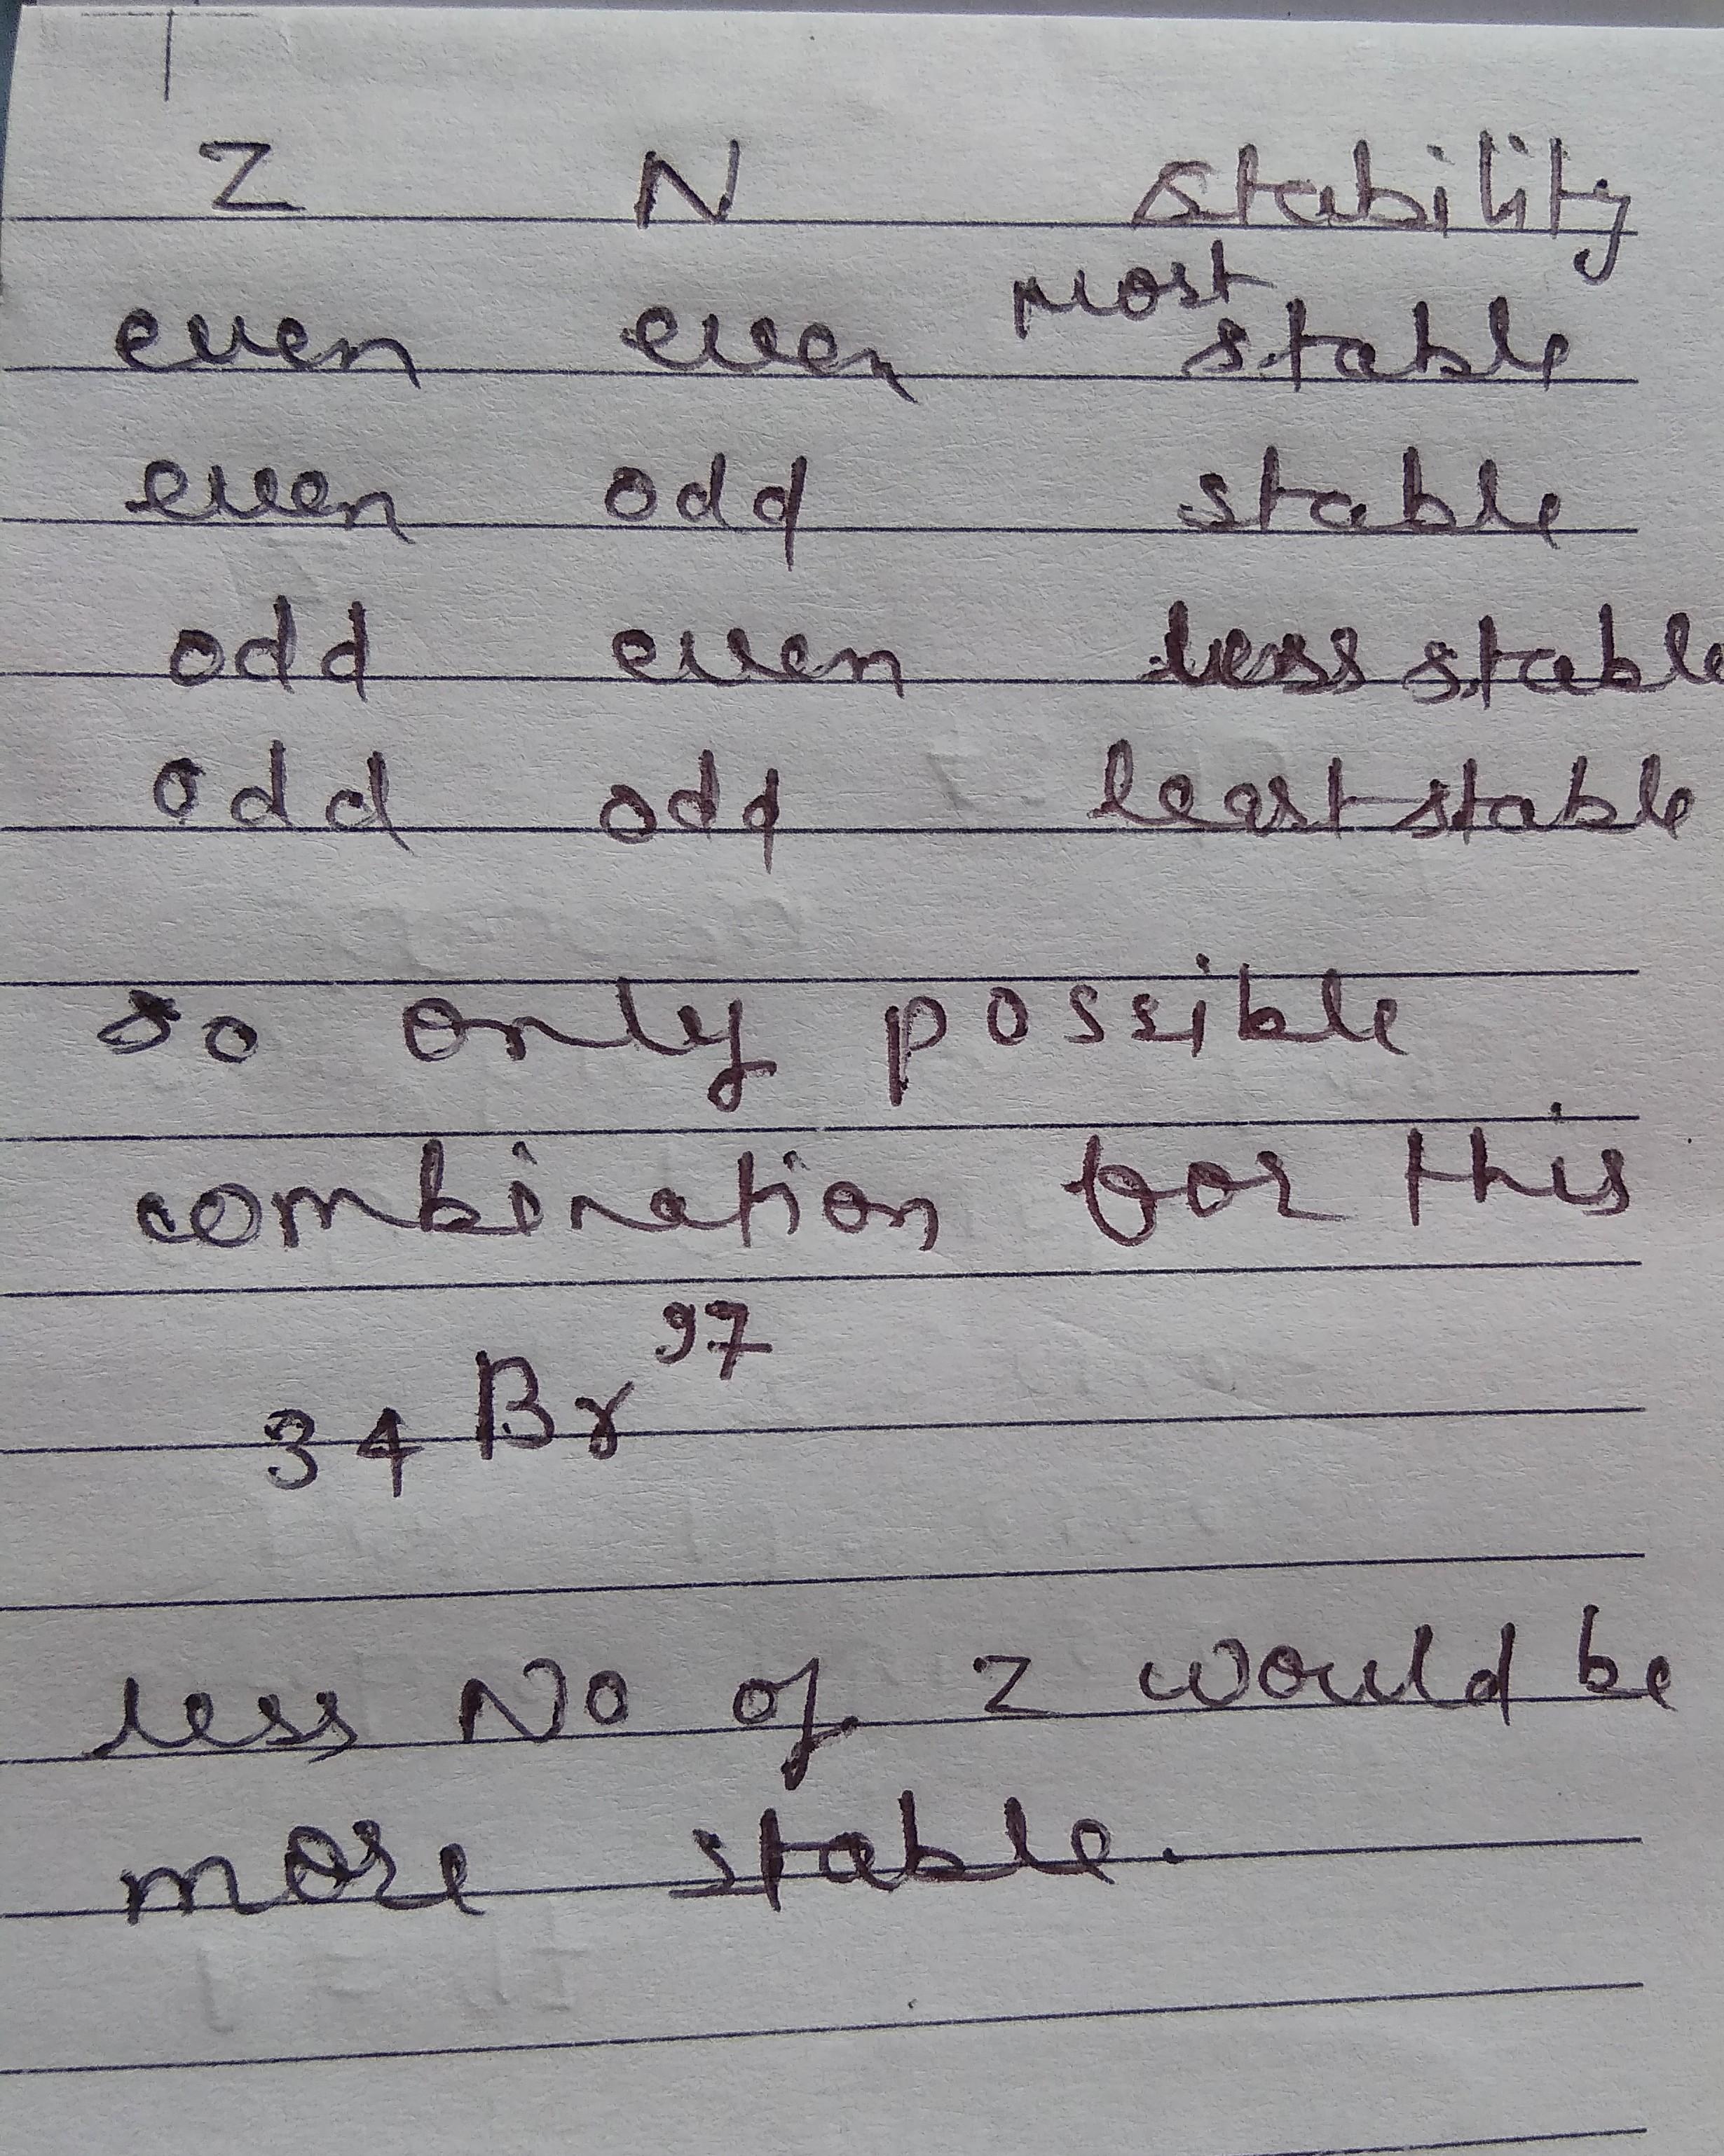 Z N stability
even even most stable
even odd stable
odd even less stable
odd odd least stable
so only possible
combination for this
34 Br 97
less No of Z would be
more stable.